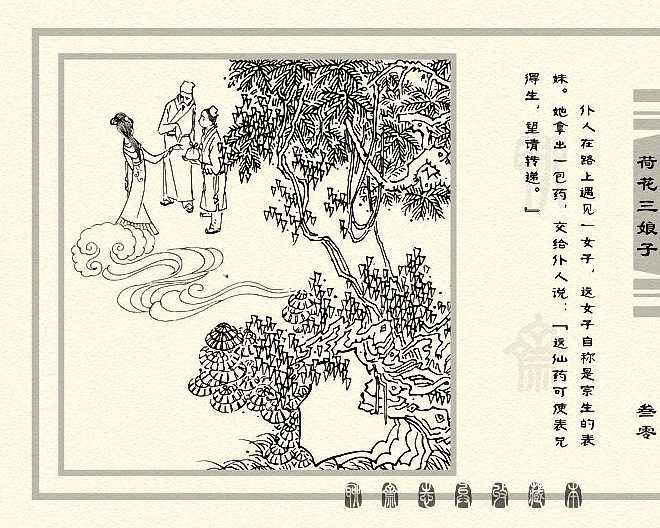 荷花三娘子
仆人在路上遇见一女子，这女子自称是宗生的表
妹。她拿出一包药，交给仆人说：『这仙药可使表兄
得生，望请转递。』
叁零